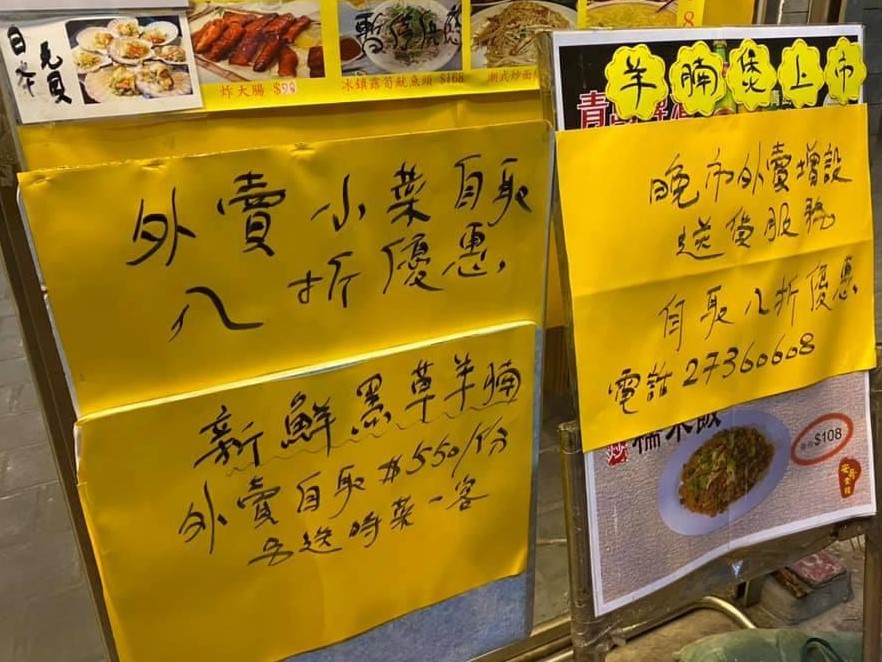 日本
元貝
炸大腸 $98
暫停供應
冰鎮露筍魷魚頭 $168
潮式炒面線
8
外賣小菜自取
八折優惠,
新鮮黑草羊腩
外賣自取 $550/份
另送時菜一客
羊腩煲上市
晚市外賣增設
送貨服務
自取八折優惠
電話 27360608
炒糯米飯
$108